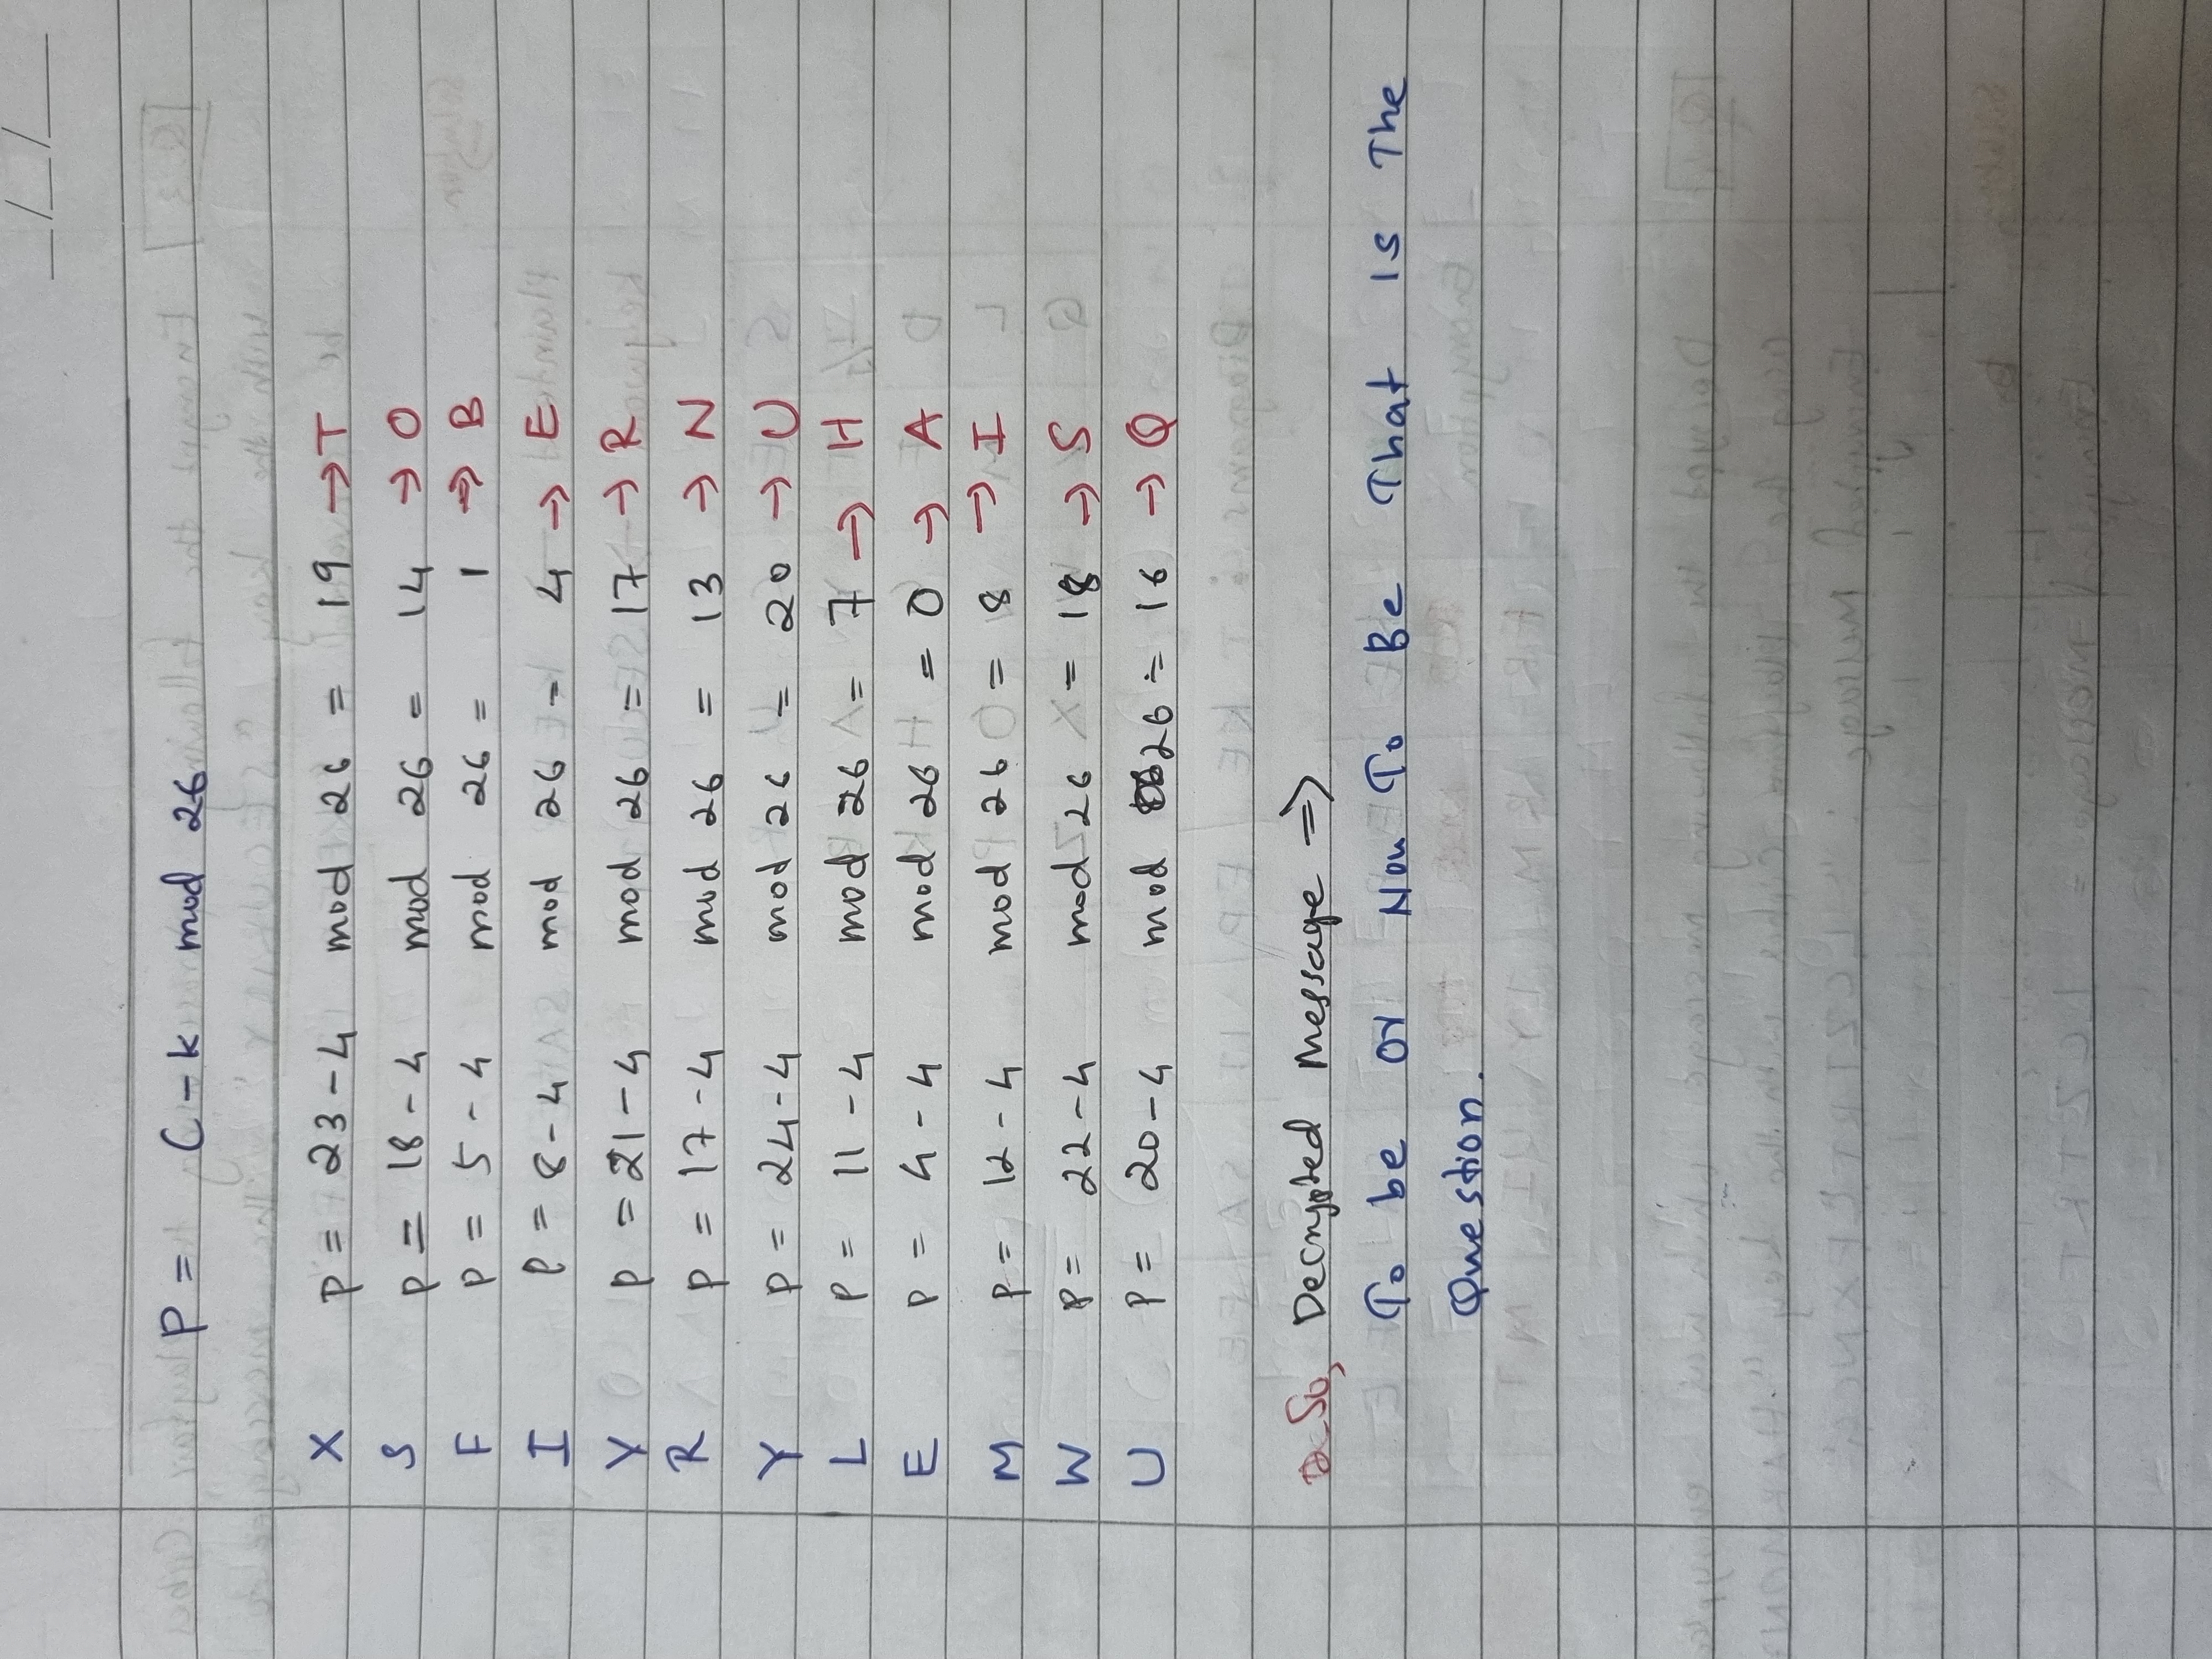 __/__/____
P = C - k mod 26
X P = 23 - 4 mod 26 = 19 → T
S P = 18 - 4 mod 26 = 14 → O
F P = 5 - 4 mod 26 = 1 → B
I P = 8 - 4 mod 26 = 4 → E
V P = 21 - 4 mod 26 = 17 → R
R P = 17 - 4 mod 26 = 13 → N
Y P = 24 - 4 mod 26 = 20 → U
L P = 11 - 4 mod 26 = 7 → H
E P = 4 - 4 mod 26 = 0 → A
M P = 12 - 4 mod 26 = 8 → I
W P = 22 - 4 mod 26 = 18 → S
U P = 20 - 4 mod 26 = 16 → Q
So, Decrypted Message ⇒
To be or Nou To Be That is The
Question.